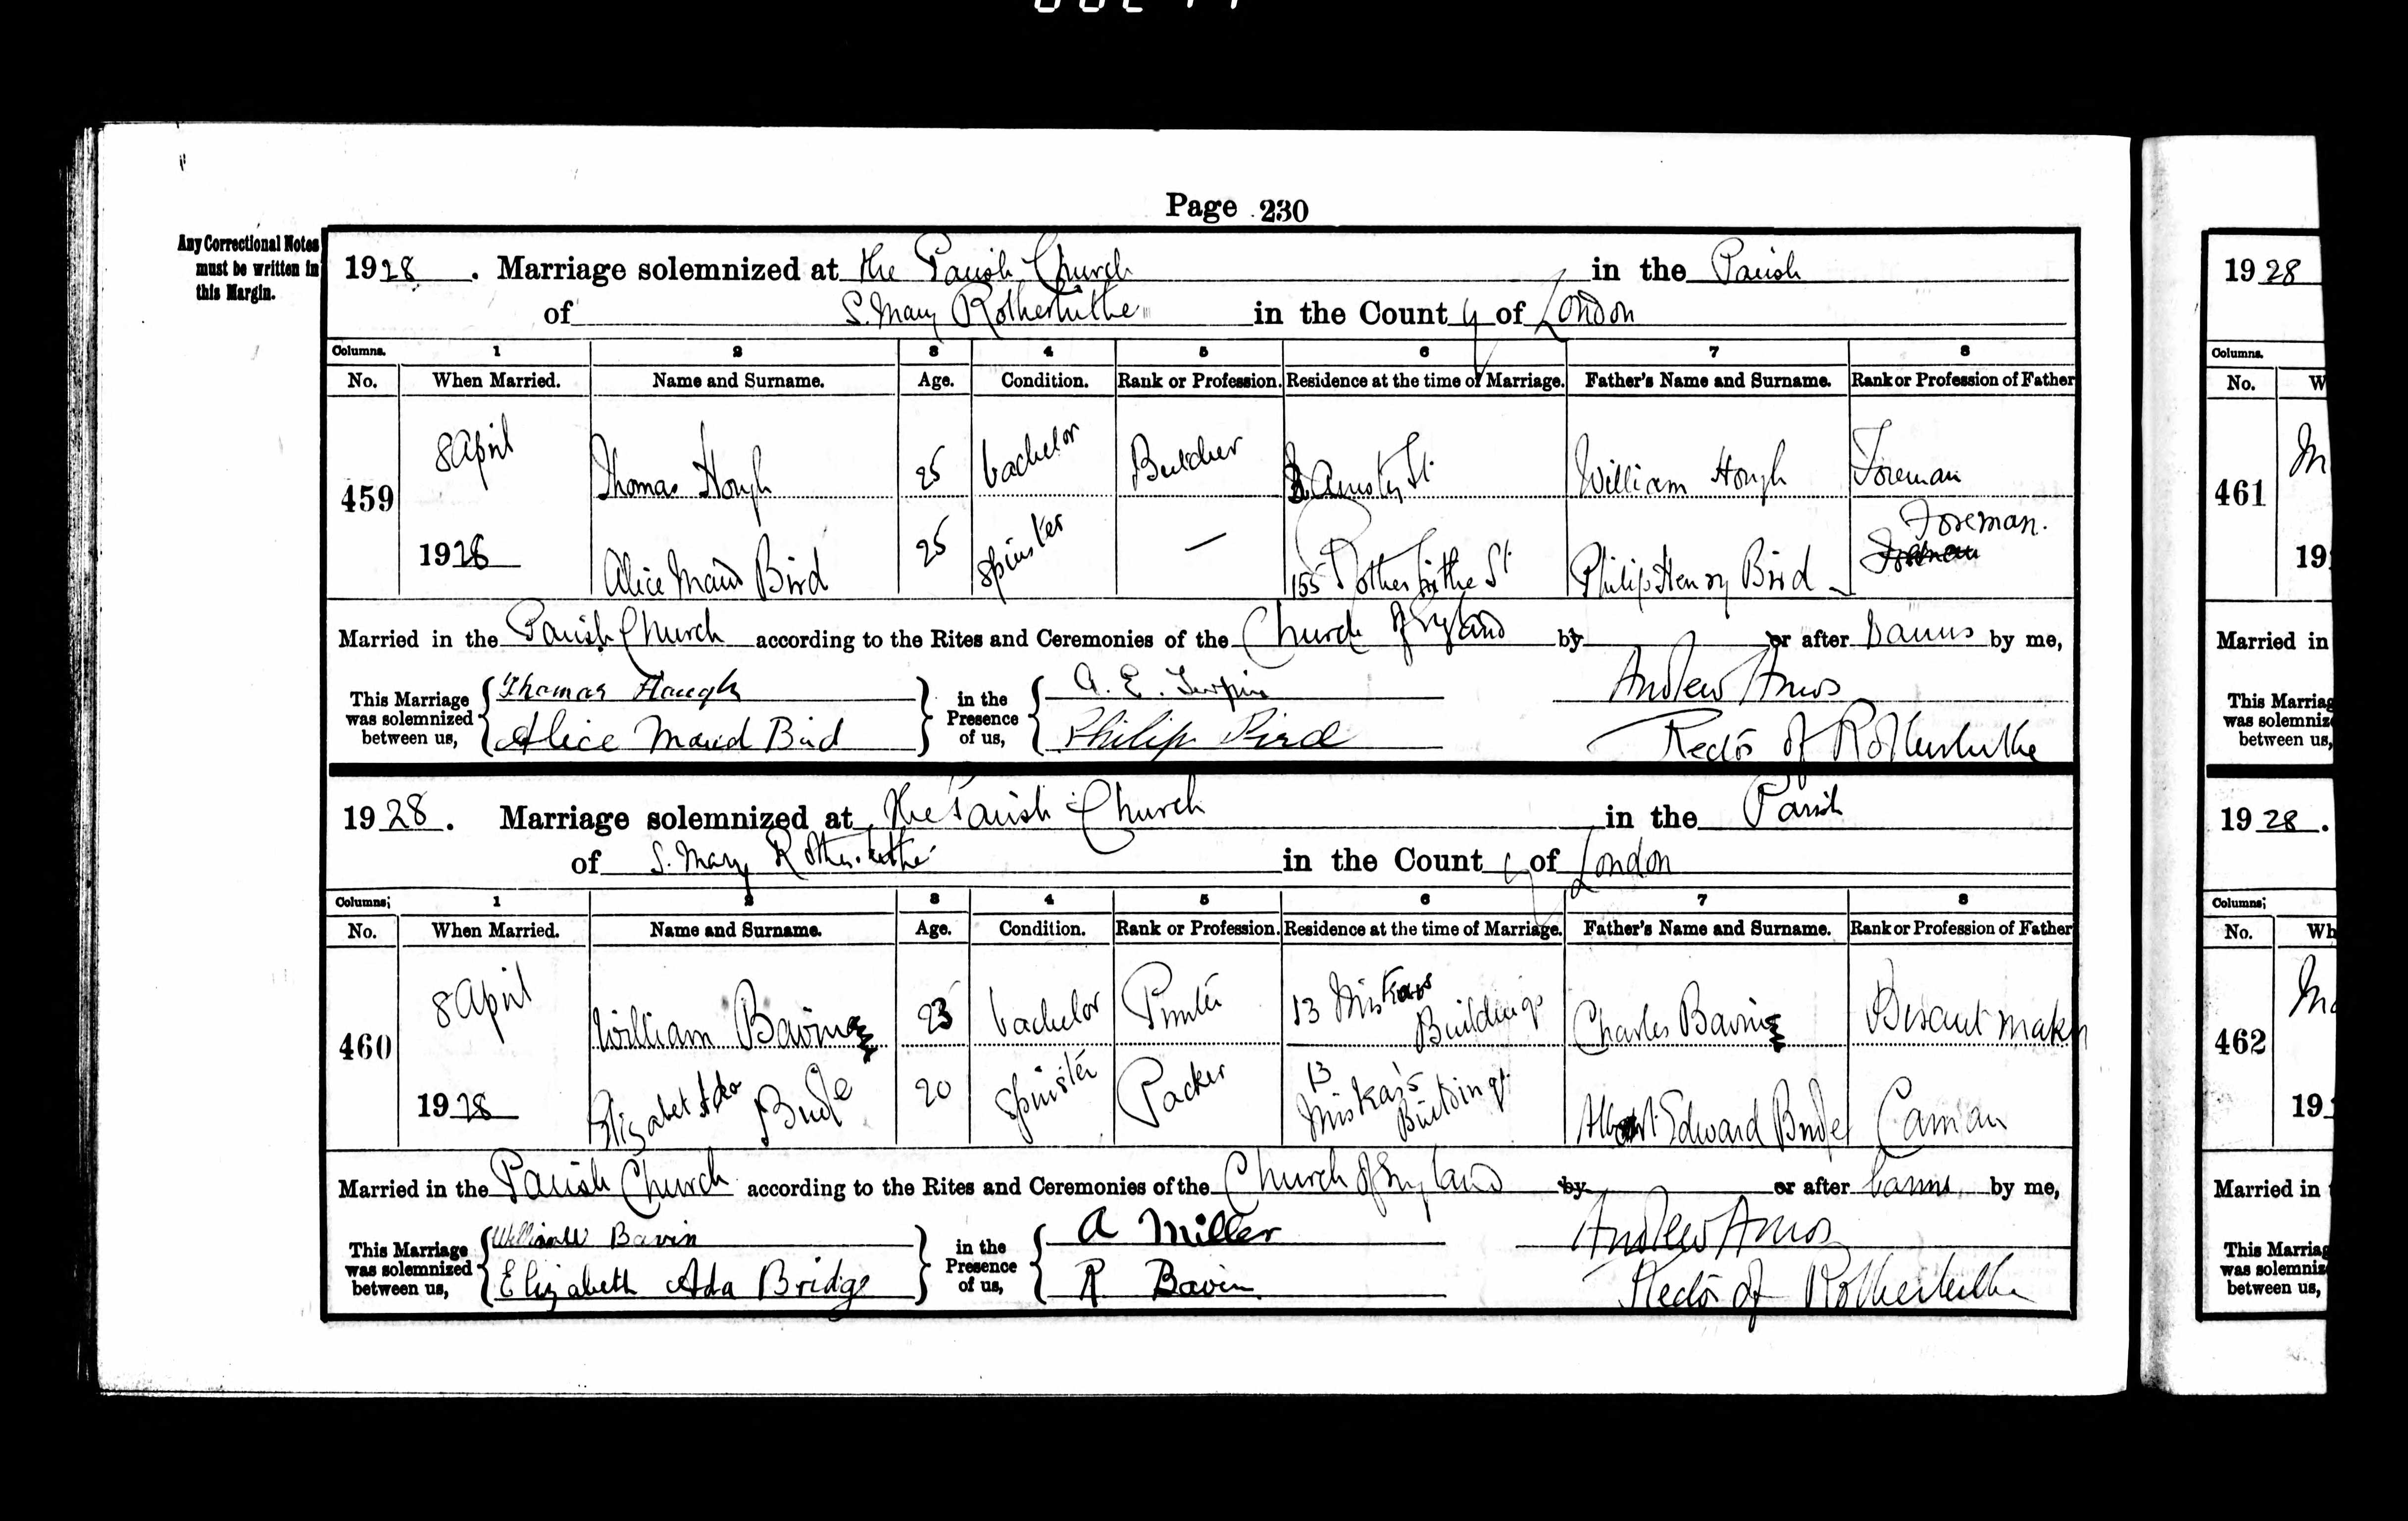 Page 230
Any Correctional Notes
must be written in
this Margin.
1928. Marriage solemnized at the Parish Church in the Parish
of S. Mary Rotherhithe in the County of London
Columns. 1 2 3 4 5 6 7 8
No. When Married. Name and Surname. Age. Condition. Rank or Profession. Residence at the time of Marriage. Father's Name and Surname. Rank or Profession of Father
459 8 April Thomas Hough 25 bachelor Butcher St. William Hough Foreman
1928 Alice Maud Bird 25 Spinster — 155 Rotherhithe St Philip Henry Bird Foreman.
Married in the Parish Church according to the Rites and Ceremonies of the Church of England by or after Banns by me,
This Marriage was solemnized between us, Thomas Hough in the Presence of us, A. E. Turpin Andrew Amos
Alice Maud Bird Philip Bird Rector of Rotherhithe
1928. Marriage solemnized at the Parish Church in the Parish
of S. Mary Rotherhithe in the County of London
Columns; 1 2 3 4 5 6 7 8
No. When Married. Name and Surname. Age. Condition. Rank or Profession. Residence at the time of Marriage. Father's Name and Surname. Rank or Profession of Father
460 8 April William Bavin 23 bachelor Printer 13 Buildings Charles Bavin maker
1928 Elizabeth Ada Bridge 20 Spinster Packer 13 Buildings Albert Edward Bridge Carman
Married in the Parish Church according to the Rites and Ceremonies of the Church of England by or after banns by me,
This Marriage was solemnized between us, William Bavin in the Presence of us, A Miller Andrew Amos
Elizabeth Ada Bridge R Bavin Rector of Rotherhithe
1928
Columns.
No. W
461
19
Married in
This Marriag
was solemniz
between us,
1928.
Columns;
No. Wh
462
19
Married in
This Marriag
was solemniz
between us,